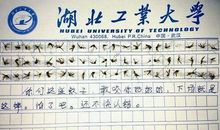 湖北工業大學
HUBEI UNIVERSITY OF TECHNOLOGY
Wuhan 430068. Hubei P.R.China 中国·武汉
你们这些蚊子,敢咬你 的,下场就是
这样,怕了吧,还不快认错。